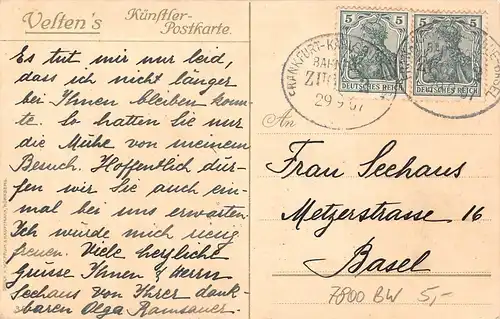 Velten's Künstler-
Postkarte.
Es tut mir nur leid,
dass ich nicht länger
bei Ihnen bleiben konn-
te. So hatten Sie nur
die Mühe von meinem
Besuch. Hoffentlich dür-
fen wir Sie auch ein-
mal bei uns erwarten.
Ich würde mich riesig
freuen. Viele herzliche
Grüsse Ihnen & Herrn
Seehaus von Ihrer dank-
baren Olga Ramsauer.
5
5
DEUTSCHES REICH
DEUTSCHES REICH
FRANKFURT
BAHN
ZUG
29 9 07
An
Frau Seehaus
Metzerstrasse 16
Basel
7800 BW 5,-